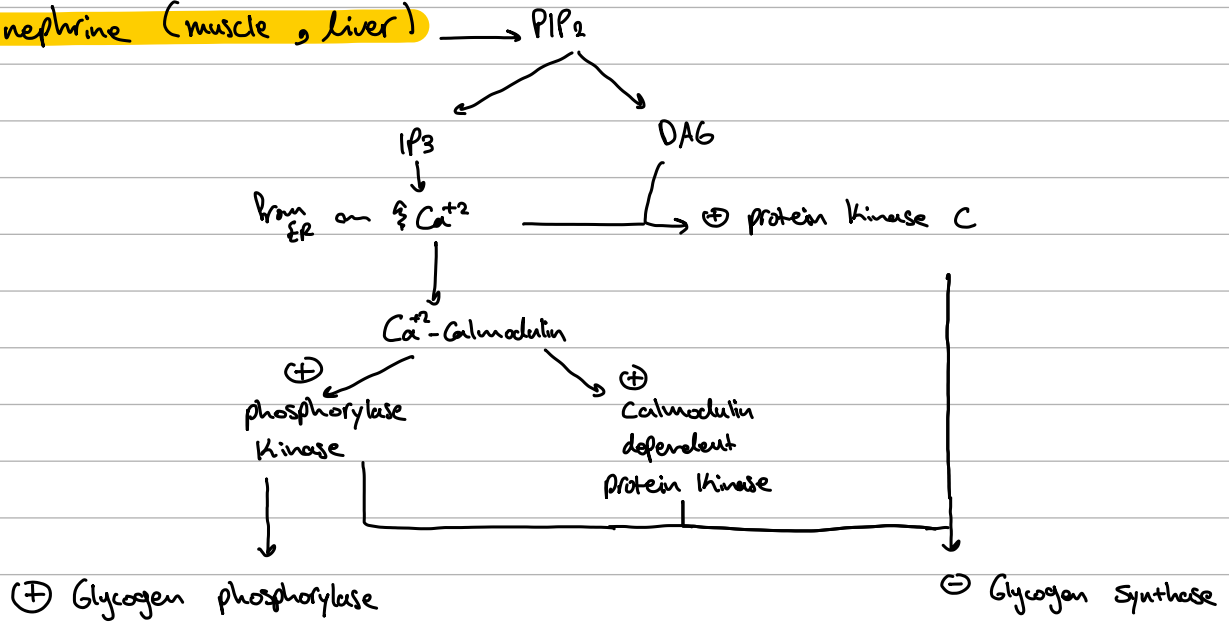 nephrine (muscle, liver) → PIP₂
IP3
DAG
from ER
Ca⁺²
⊕ protein kinase C
Ca⁺²-Calmodulin
⊕
phosphorylase
Kinase
⊕
Calmodulin
dependent
protein kinase
⊕ Glycogen phosphorylase
⊖ Glycogen synthase